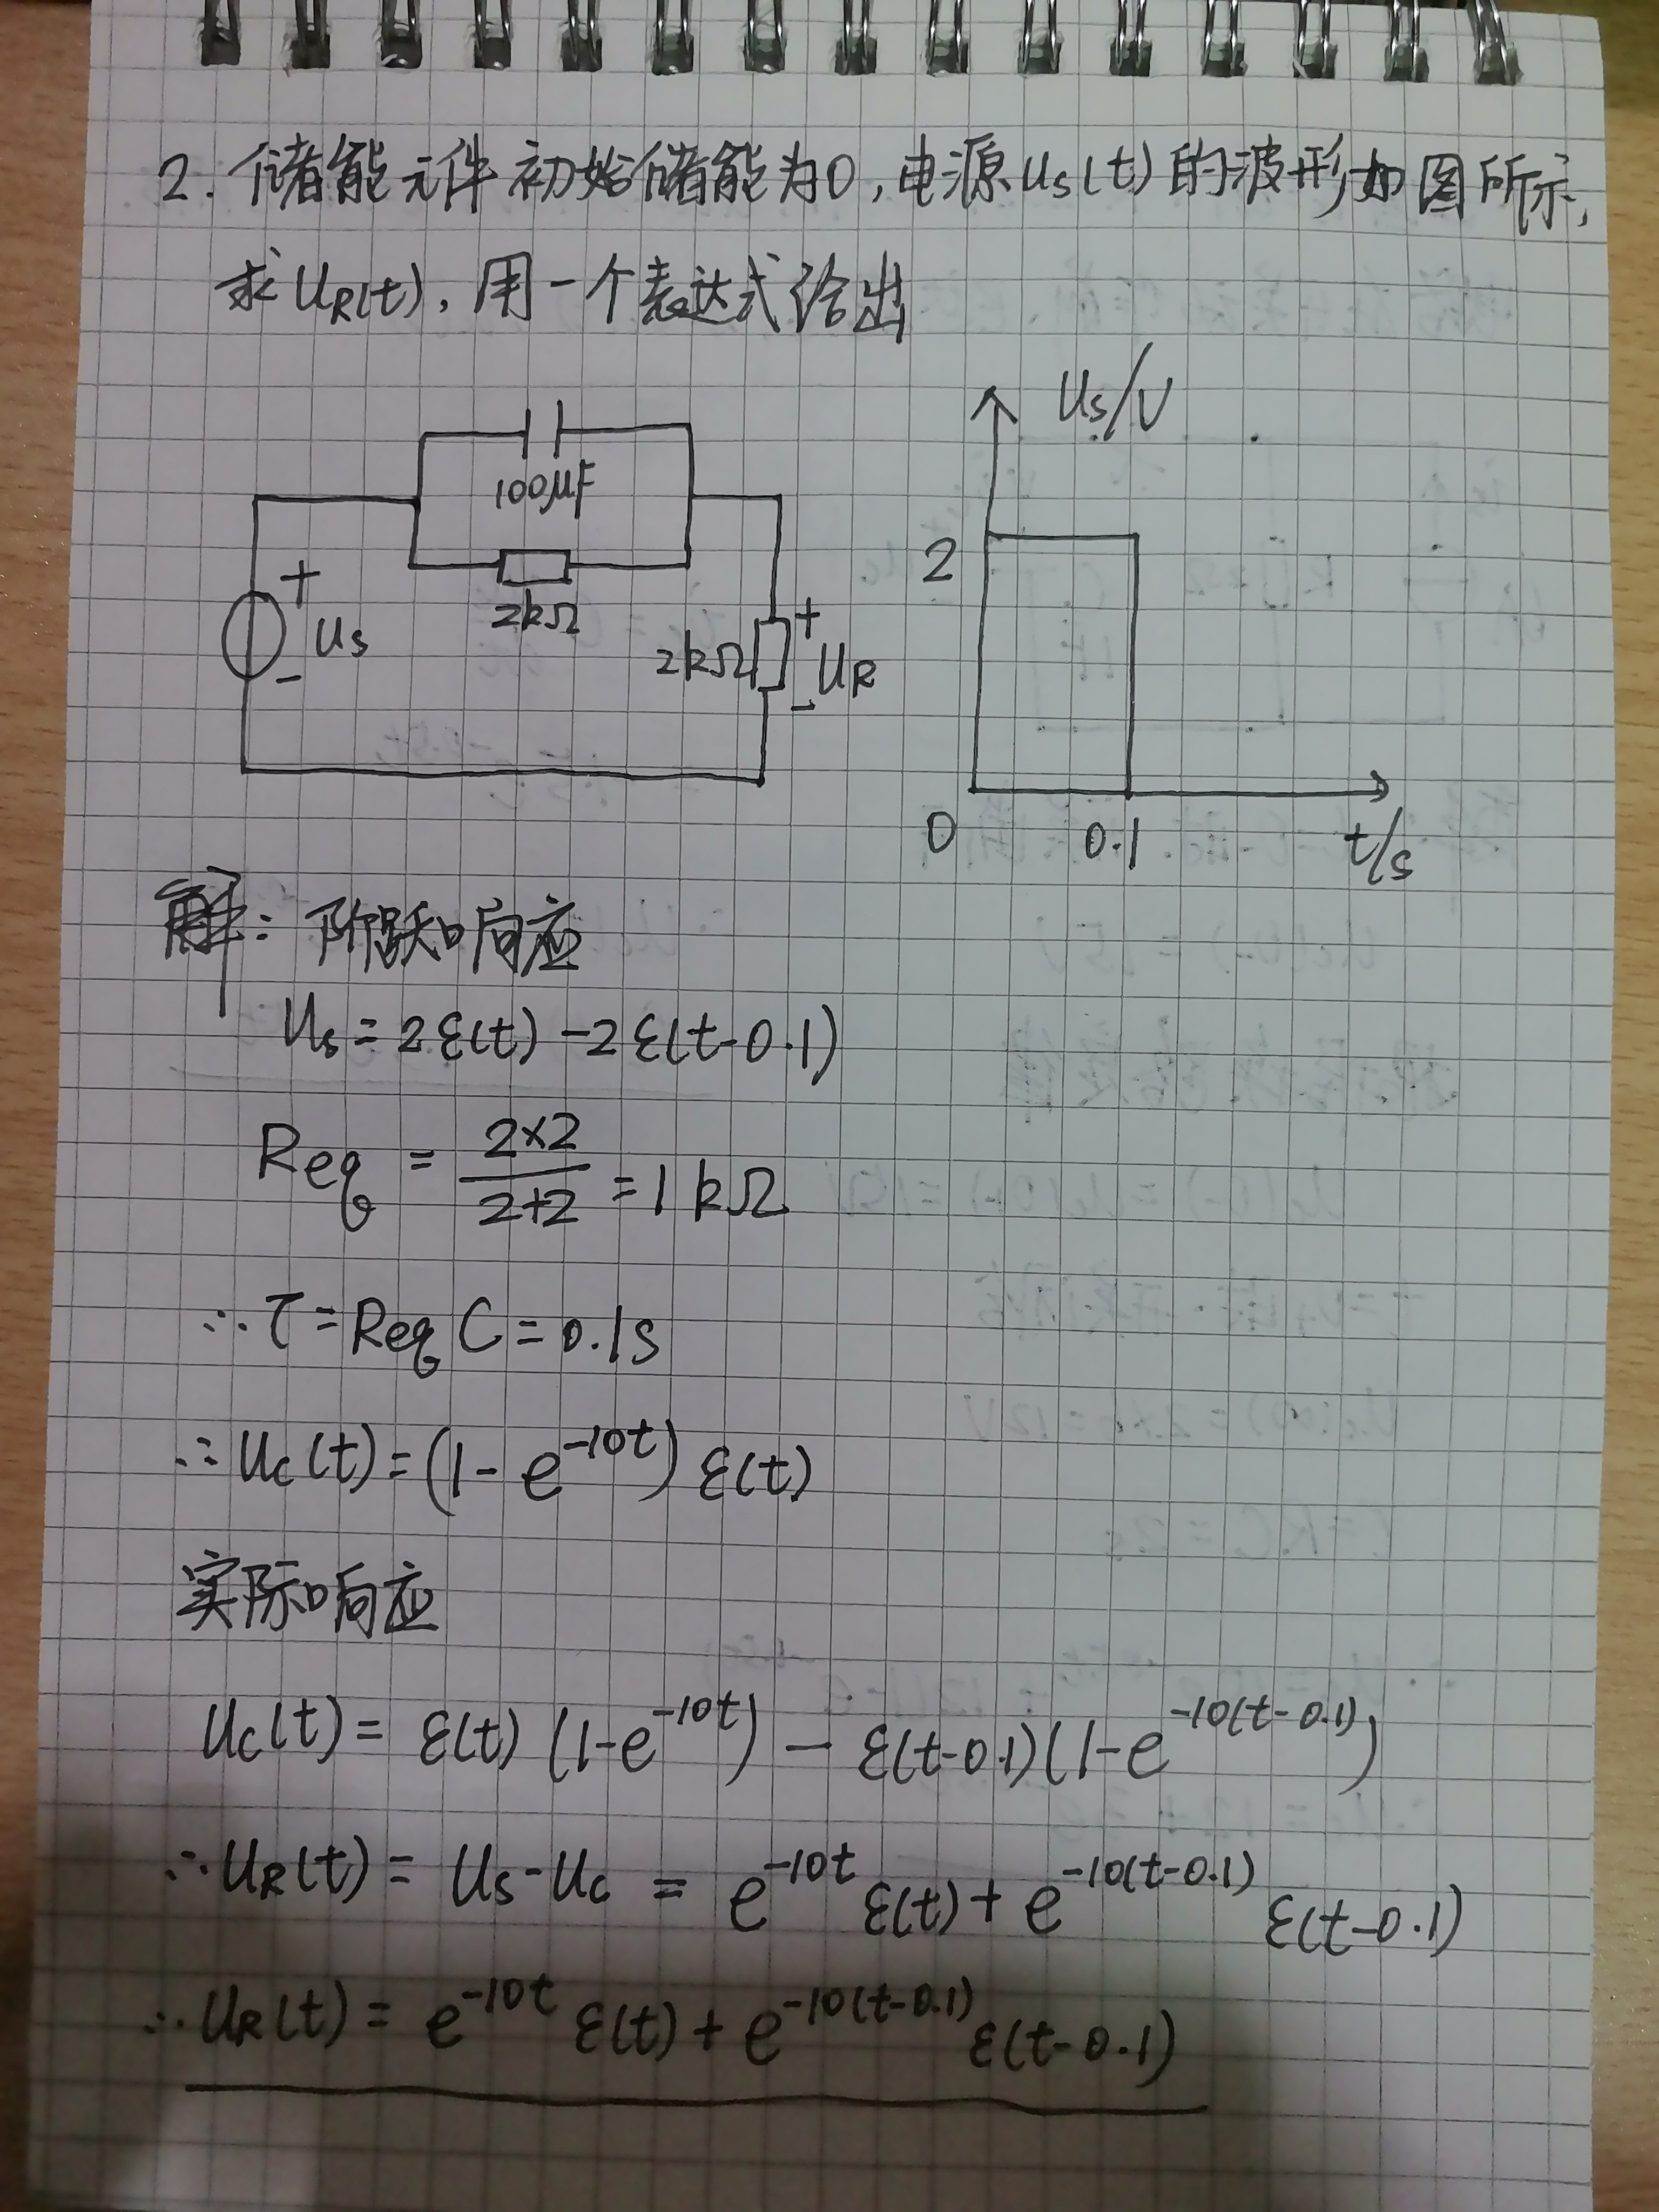 2. 储能元件初始储能为0,电源us(t)的波形如图所示,
求uR(t),用一个表达式给出
100μF
2kΩ
+
us
-
2kΩ
+
uR
-
us/V
2
0
0.1
t/s
解:阶跃响应
us = 2ε(t) - 2ε(t-0.1)
Req = 2×2/2+2 = 1 kΩ
∴ τ = Req C = 0.1s
∴ uc(t) = (1 - e^-10t) ε(t)
实际响应
uc(t) = ε(t) (1-e^-10t) - ε(t-0.1)(1-e^-10(t-0.1))
∴ uR(t) = us - uc = e^-10t ε(t) + e^-10(t-0.1) ε(t-0.1)
∴ uR(t) = e^-10t ε(t) + e^-10(t-0.1) ε(t-0.1)